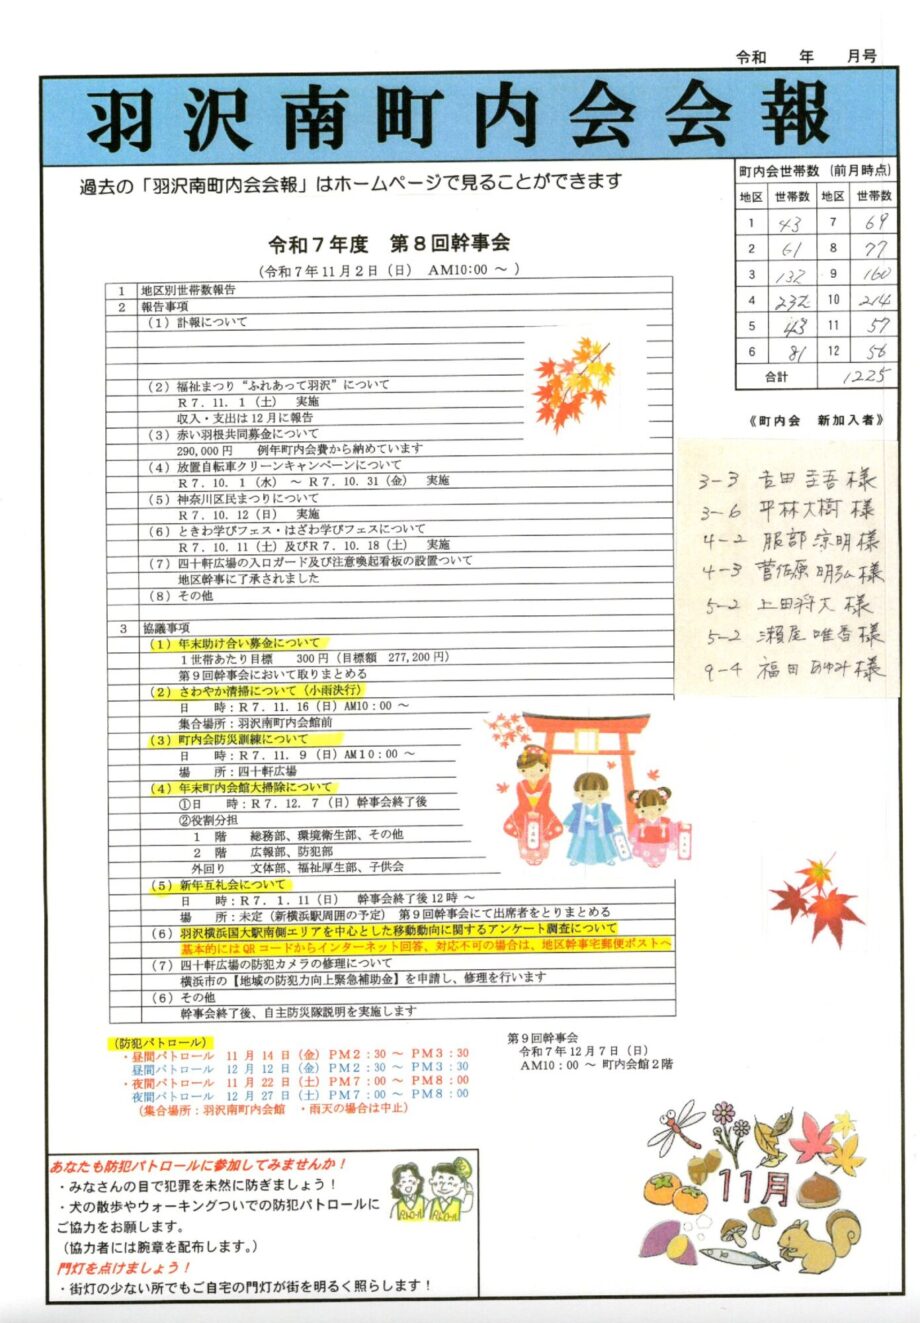 令和　年　月号
羽沢南町内会会報
過去の「羽沢南町内会会報」はホームページで見ることができます
町内会世帯数 (前月時点)
地区 世帯数 地区 世帯数
1 43 7 69
2 61 8 77
3 132 9 160
4 232 10 214
5 43 11 57
6 81 12 56
合計 1225
《町内会　新加入者》
3-3 吉田圭吾様
3-6 平林大樹様
4-2 服部涼明様
4-3 菅佐原明弘様
5-2 上田将大様
5-2 瀬尾唯香様
9-4 福田あゆみ様
令和７年度　第８回幹事会
（令和７年11月２日（日）　AM10:00 ～ ）
1 地区別世帯数報告
2 報告事項
（1）訃報について
（2）福祉まつり“ふれあって羽沢”について
Ｒ７.11.１（土）　実施
収入・支出は12月に報告
（3）赤い羽根共同募金について
290,000円　　例年町内会費から納めています
（4）放置自転車クリーンキャンペーンについて
Ｒ７.10.１（水）　～ Ｒ７.10.31（金）　実施
（5）神奈川区民まつりについて
Ｒ７.10.12（日）　実施
（6）ときわ学びフェス・はざわ学びフェスについて
Ｒ７.10.11（土）及びＲ７.10.18（土）　実施
（7）四十軒広場の入口ガード及び注意喚起看板の設置ついて
地区幹事に了承されました
（8）その他
3 協議事項
（1）年末助け合い募金について
１世帯あたり目標　　300円（目標額　277,200円）
第９回幹事会において取りまとめる
（2）さわやか清掃について（小雨決行）
日　　時：Ｒ７.11.16（日）AM10：00 ～
集合場所：羽沢南町内会館前
（3）町内会防災訓練について
日　　時：Ｒ７.11.９（日）AM10：00 ～
場　　所：四十軒広場
（4）年末町内会館大掃除について
①日　　時：Ｒ７.12.７（日）幹事会終了後
②役割分担
１　階　　総務部、環境衛生部、その他
２　階　　広報部、防犯部
外回り　　文体部、福祉厚生部、子供会
（5）新年互礼会について
日　　時：Ｒ７.１.11（日）　幹事会終了後12時 ～
場　　所：未定（新横浜駅周囲の予定）　第９回幹事会にて出席者をとりまとめる
（6）羽沢横浜国大駅南側エリアを中心とした移動動向に関するアンケート調査について
基本的にはQRコードからインターネット回答、対応不可の場合は、地区幹事宅郵便ポストへ
（7）四十軒広場の防犯カメラの修理について
横浜市の【地域の防犯力向上緊急補助金】を申請し、修理を行います
（6）その他
幹事会終了後、自主防災隊説明を実施します
（防犯パトロール）
・昼間パトロール　11月14日（金）ＰＭ２：30 ～ ＰＭ３：30
昼間パトロール　12月12日（金）ＰＭ２：30 ～ ＰＭ３：30
・夜間パトロール　11月22日（土）ＰＭ７：00 ～ ＰＭ８：00
夜間パトロール　12月27日（土）ＰＭ７：00 ～ ＰＭ８：00
（集合場所：羽沢南町内会館　・雨天の場合は中止）
第９回幹事会
令和７年12月７日（日）
AM10：00 ～ 町内会館２階
あなたも防犯パトロールに参加してみませんか！
・みなさんの目で犯罪を未然に防ぎましょう！
・犬の散歩やウォーキングついでの防犯パトロールに
ご協力をお願します。
（協力者には腕章を配布します。）
門灯を点けましょう！
・街灯の少ない所でもご自宅の門灯が街を明るく照らします！
11月